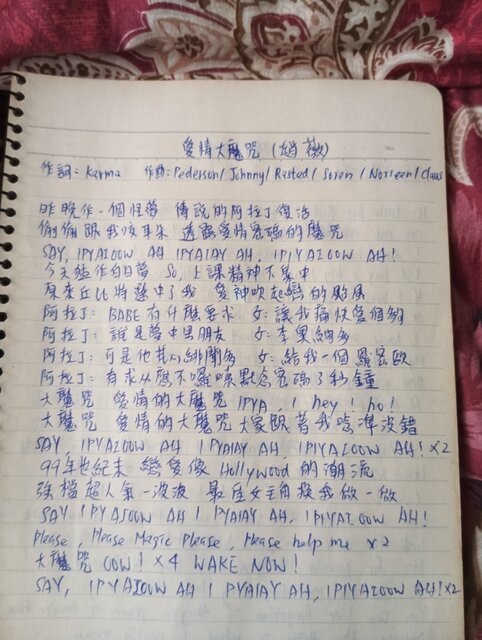 愛情大魔咒（趙薇）
作詞：Karma 作曲：Pederson/Johnny/Rasted/Soren/Norreen/Claus
昨晚作一個性夢 傳說的阿拉丁復活
偷偷跟我咬耳朵 透露愛情密碼的魔咒
SAY, IPYAIOOW AH IPYAIAY AH, IPIYAIOOW AH!
今天繼作白日夢 So, 上課精神不集中
原來丘比特選中了我 愛神吹起戀的颱風
阿拉丁：BABE有什麼要求 女：讓我痛快愛個夠
阿拉丁：誰是夢中男朋友 女：李奧納多
阿拉丁：可是他其心緋聞多 女：給我一個羅密歐
阿拉丁：有求必應不囉嗦默念密碼3秒鐘
大魔咒 愛情的大魔咒 IPYA, I hey! ho!
大魔咒 愛情的大魔咒 大家跟著我唸準沒錯
SAY, IPYAIOOW AH IPYAIAY AH, IPIYAIOOW AH! x2
99年世紀末 戀愛像Hollywood的潮流
強檔超人氣一波波 最佳女主角換我做一做
SAY IPYAIOOW AH IPYAIAY AH, IPIYAIOOW AH!
Please, Please Magic Please, Please help me x2
大魔咒 OOW! x4 WAKE NOW!
SAY, IPYAIOOW AH IPYAIAY AH, IPIYAIOOW AH! x2